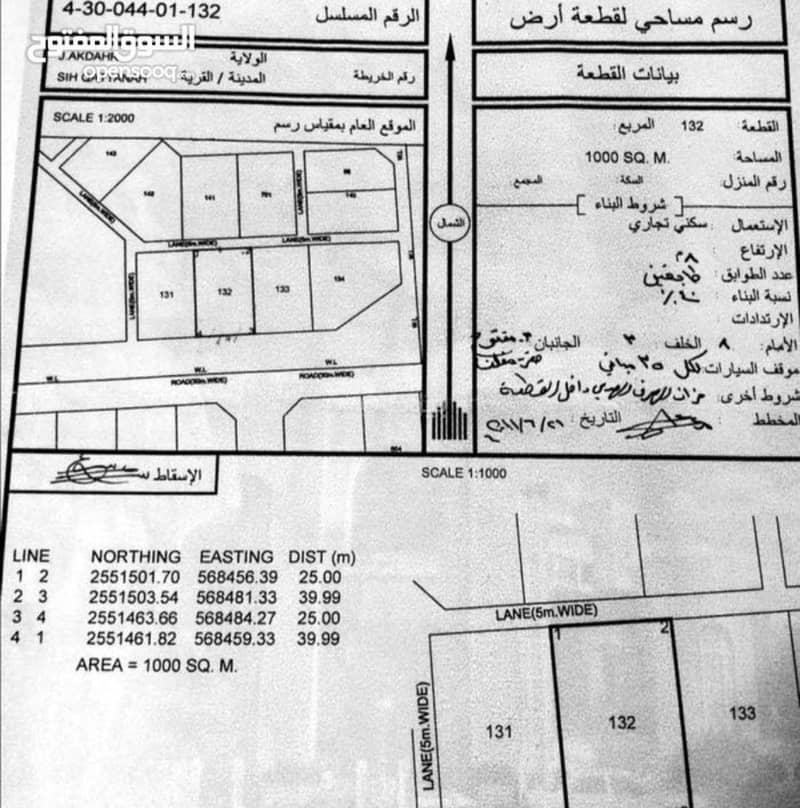 رسم مساحي لقطعة أرض
الرقم المسلسل 4-30-044-01-132
السوق المفتوح
opensooq
بيانات القطعة
الولاية J.AKDAHR
رقم الخريطة المدينة / القرية SIH QATTANAH
القطعة: 132 المربع:
المساحة: 1000 SQ. M.
رقم المنزل: السكة: المجمع:
شروط البناء
الإستعمال : سكني تجاري
الإرتفاع : ٨م
عدد الطوابق : طابقين
نسبة البناء : ٤٠٪
الإرتدادات
الأمام: ٨ الخلف: ٣ الجانبان:
موقف السيارات: لكل
شروط أخرى:
المخطط : التاريخ :
الشمال
SCALE 1:2000 الموقع العام بمقياس رسم
143
142
141
LANE(5m.WIDE)
LANE(5m.WIDE)
LANE(5m.WIDE)
LANE(5m.WIDE)
LANE(5m.WIDE)
131
132
133
134
W.L
W.L
W.L
ROAD(10m.WIDE)
ROAD(10m.WIDE)
الإسقاط
SCALE 1:1000
LINE NORTHING EASTING DIST (m)
1 2 2551501.70 568456.39 25.00
2 3 2551503.54 568481.33 39.99
3 4 2551463.66 568484.27 25.00
4 1 2551461.82 568459.33 39.99
AREA = 1000 SQ. M.
LANE(5m.WIDE)
1 2
LANE(5m.WIDE)
131
132
133